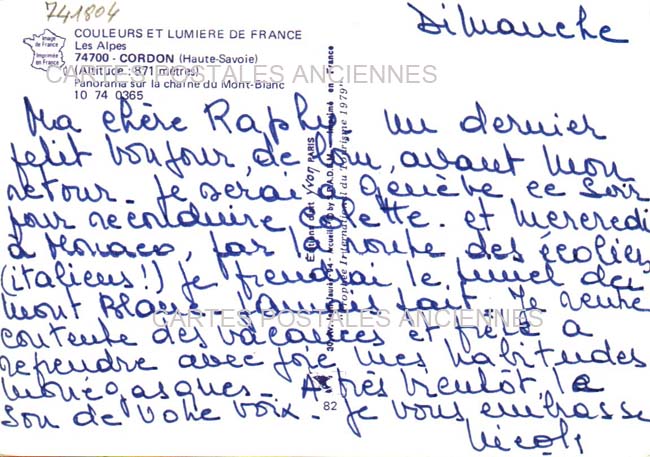 741804
Dimanche
Image de France
Imprimée en France
COULEURS ET LUMIERE DE FRANCE
Les Alpes
74700 - CORDON (Haute-Savoie)
(Altitude : 871 mètres)
Panorama sur la chaîne du Mont-Blanc
10 74 0365
CARTES POSTALES ANCIENNES
Ma chère un dernier
petit bonjour, de avant mon
retour. Je serai à Genève ce soir
pour reconduire Colette. et mercredi
à Monaco, par la route des écoliers
(italiens!) je prendrai le tunnel du
mont Blanc. jamais fait. Je rentre
CARTES POSTALES ANCIENNES
contente des vacances et prête à
reprendre avec joie mes habitudes
monégasques. A très bientôt, le
son de votre voix. Je vous embrasse
Nicole
Editions d'art Yvon PARIS
Imprimé en France
Trophée International du Tourisme 1979
82